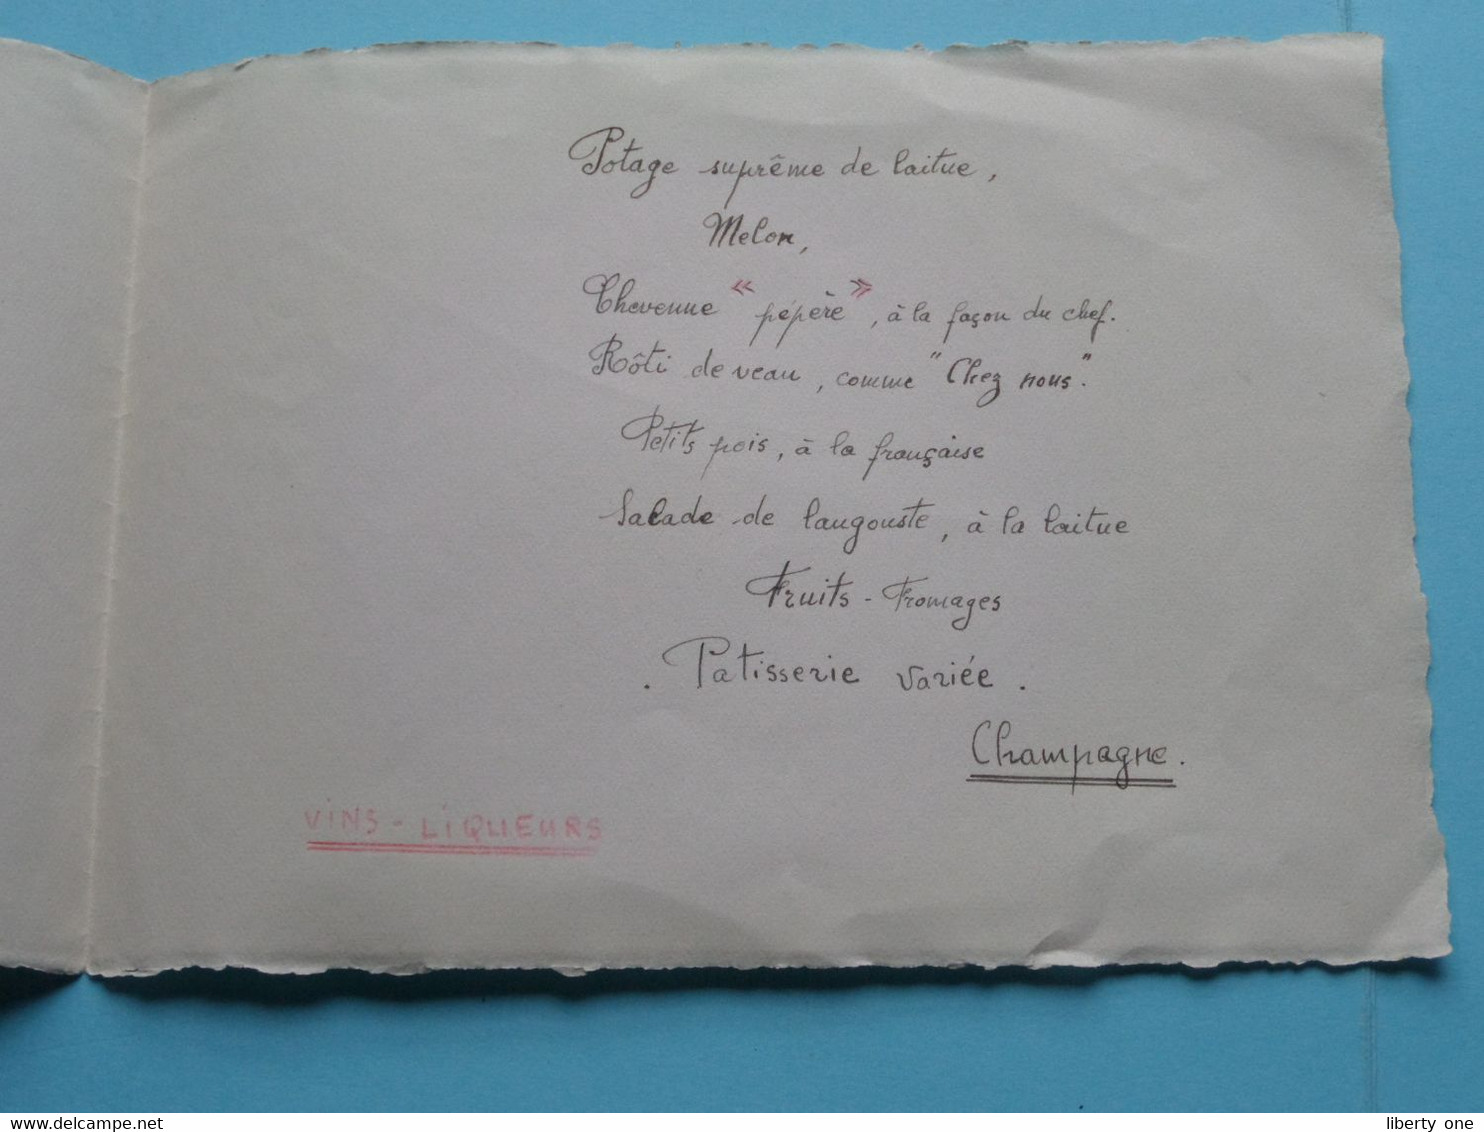 Potage suprême de laitue,
Melon,
Chevenne « pépère », à la façon du chef.
Rôti de veau, comme "Chez nous".
Petits pois, à la française
Salade de langouste, à la laitue
Fruits - Fromages
. Patisserie variée.
Champagne.
VINS - LIQUEURS
www.delcampe.net
liberty one